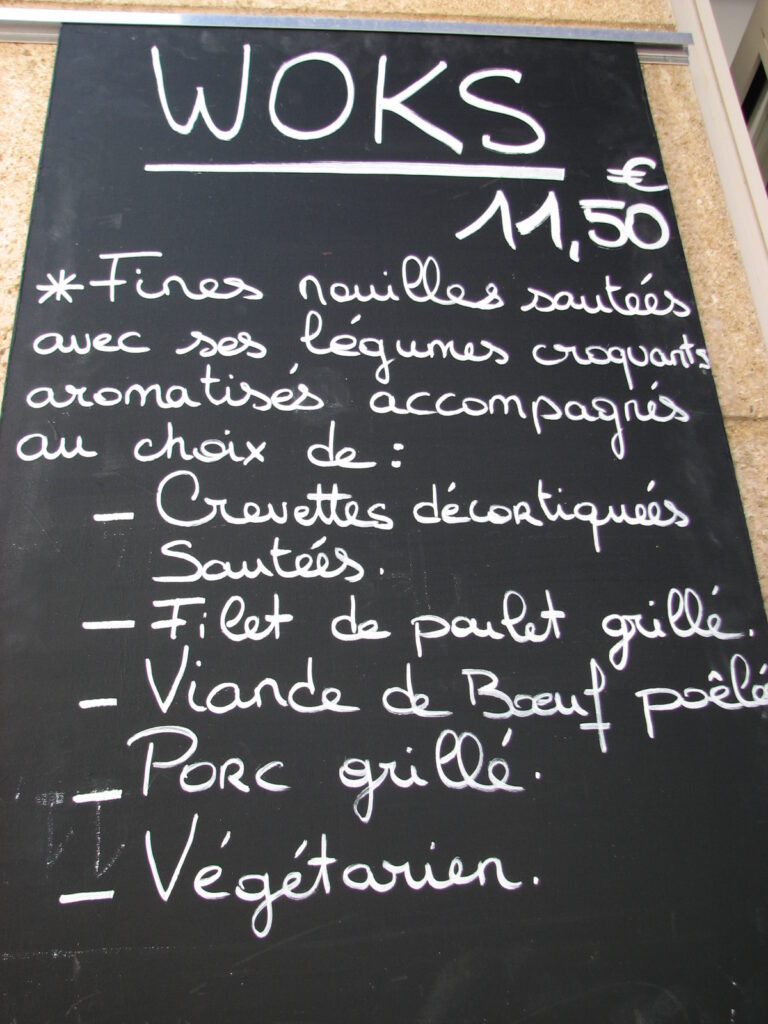 WOKS
€
11,50
*Fines nouilles sautées
avec ses légumes croquants
aromatisés accompagnés
au choix de :
- Crevettes décortiqueés
Sauteés.
- Filet de poulet grillé.
- Viande de Bœuf poêlé
- PORC grillé.
- Végétarien.